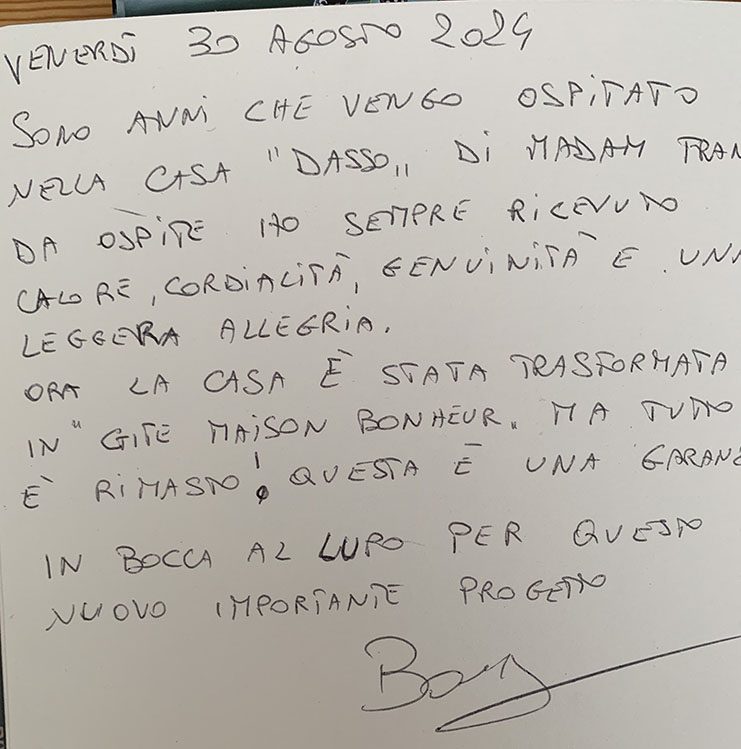 VENERDÌ 30 AGOSTO 2024
SONO ANNI CHE VENGO OSPITATO
NELLA CASA "DASSO" DI MADAM TRAN
DA OSPITE HO SEMPRE RICEVUTO
CALORE, CORDIALITÀ, GENUINITÀ E UNA
LEGGERA ALLEGRIA.
ORA LA CASA È STATA TRASFORMATA
IN "GITE MAISON BONHEUR" MA TUTTO
È RIMASTO! QUESTA È UNA GARANZ
IN BOCCA AL LUPO PER QUESTO
NUOVO IMPORTANTE PROGETTO